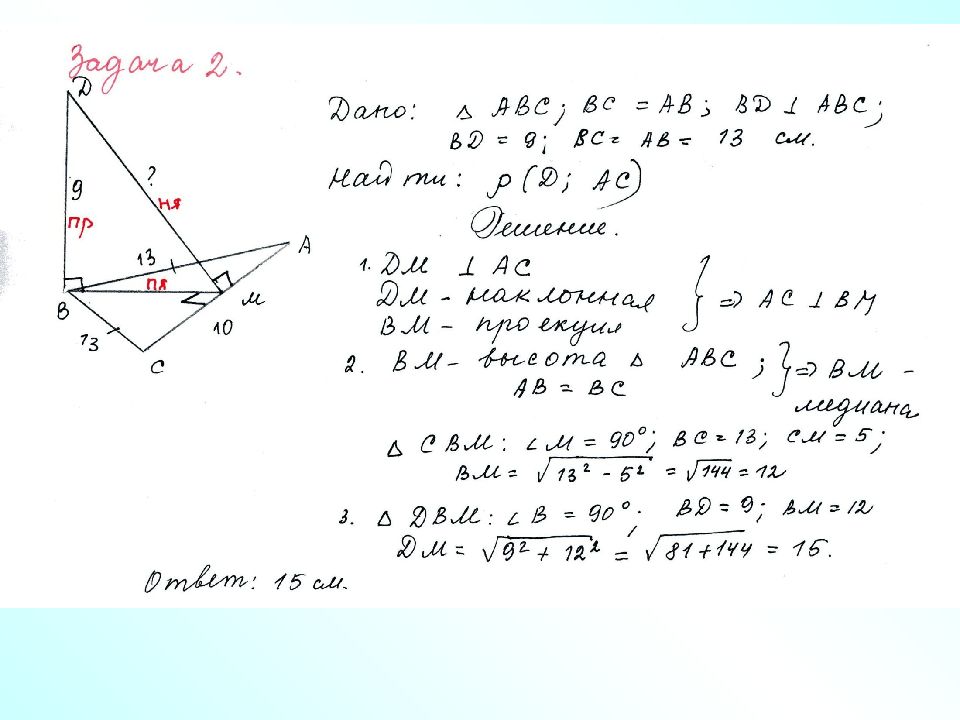 Задача 2.
D
9
пр
?
ня
13
пя
A
B
M
13
10
C
Дано: △ ABC; BC = AB; BD ⊥ ABC;
BD = 9; BC = AB = 13 см.
Найти: ρ(D; AC)
Решение.
1. DM ⊥ AC
DM - наклонная
BM - проекция
} => AC ⊥ BM
2. BM - высота △ ABC;
AB = BC
} => BM -
медиана
△ CBM: ∠M = 90°; BC = 13; CM = 5;
BM = √13² - 5² = √144 = 12
3. △ DBM: ∠B = 90°; BD = 9; BM = 12
DM = √9² + 12² = √81 + 144 = 15.
Ответ: 15 см.